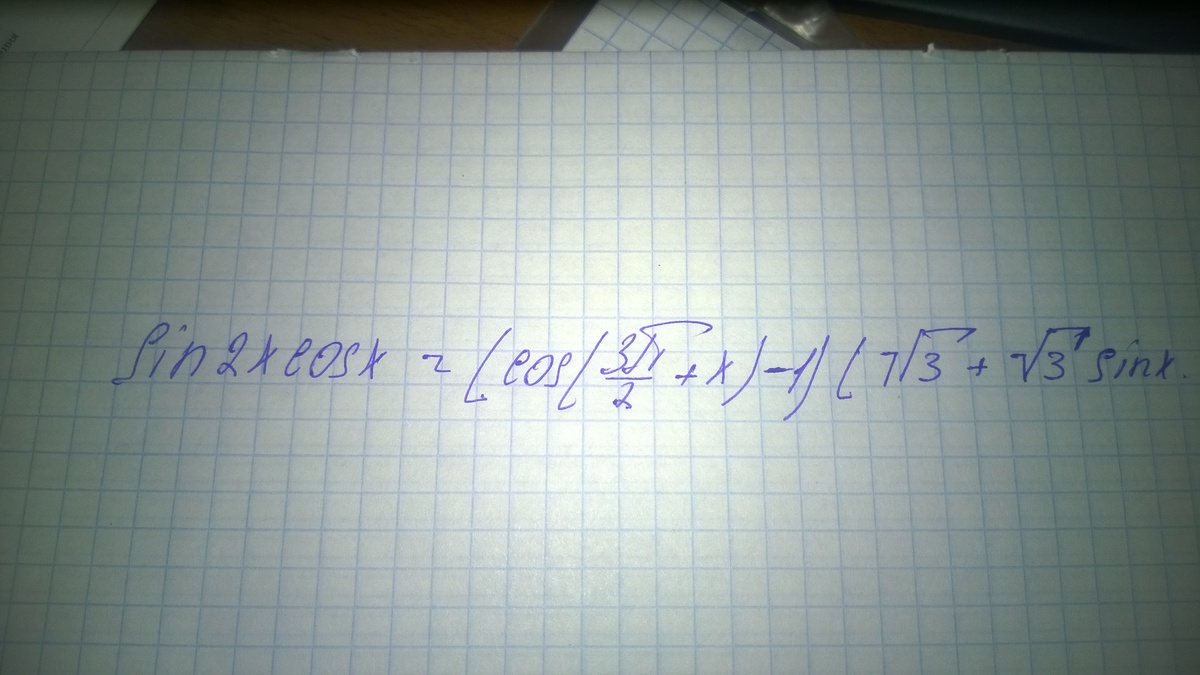 sin2xcosx = (cos(3π/2 + x) - 1) (7√3 + √3 sinx.